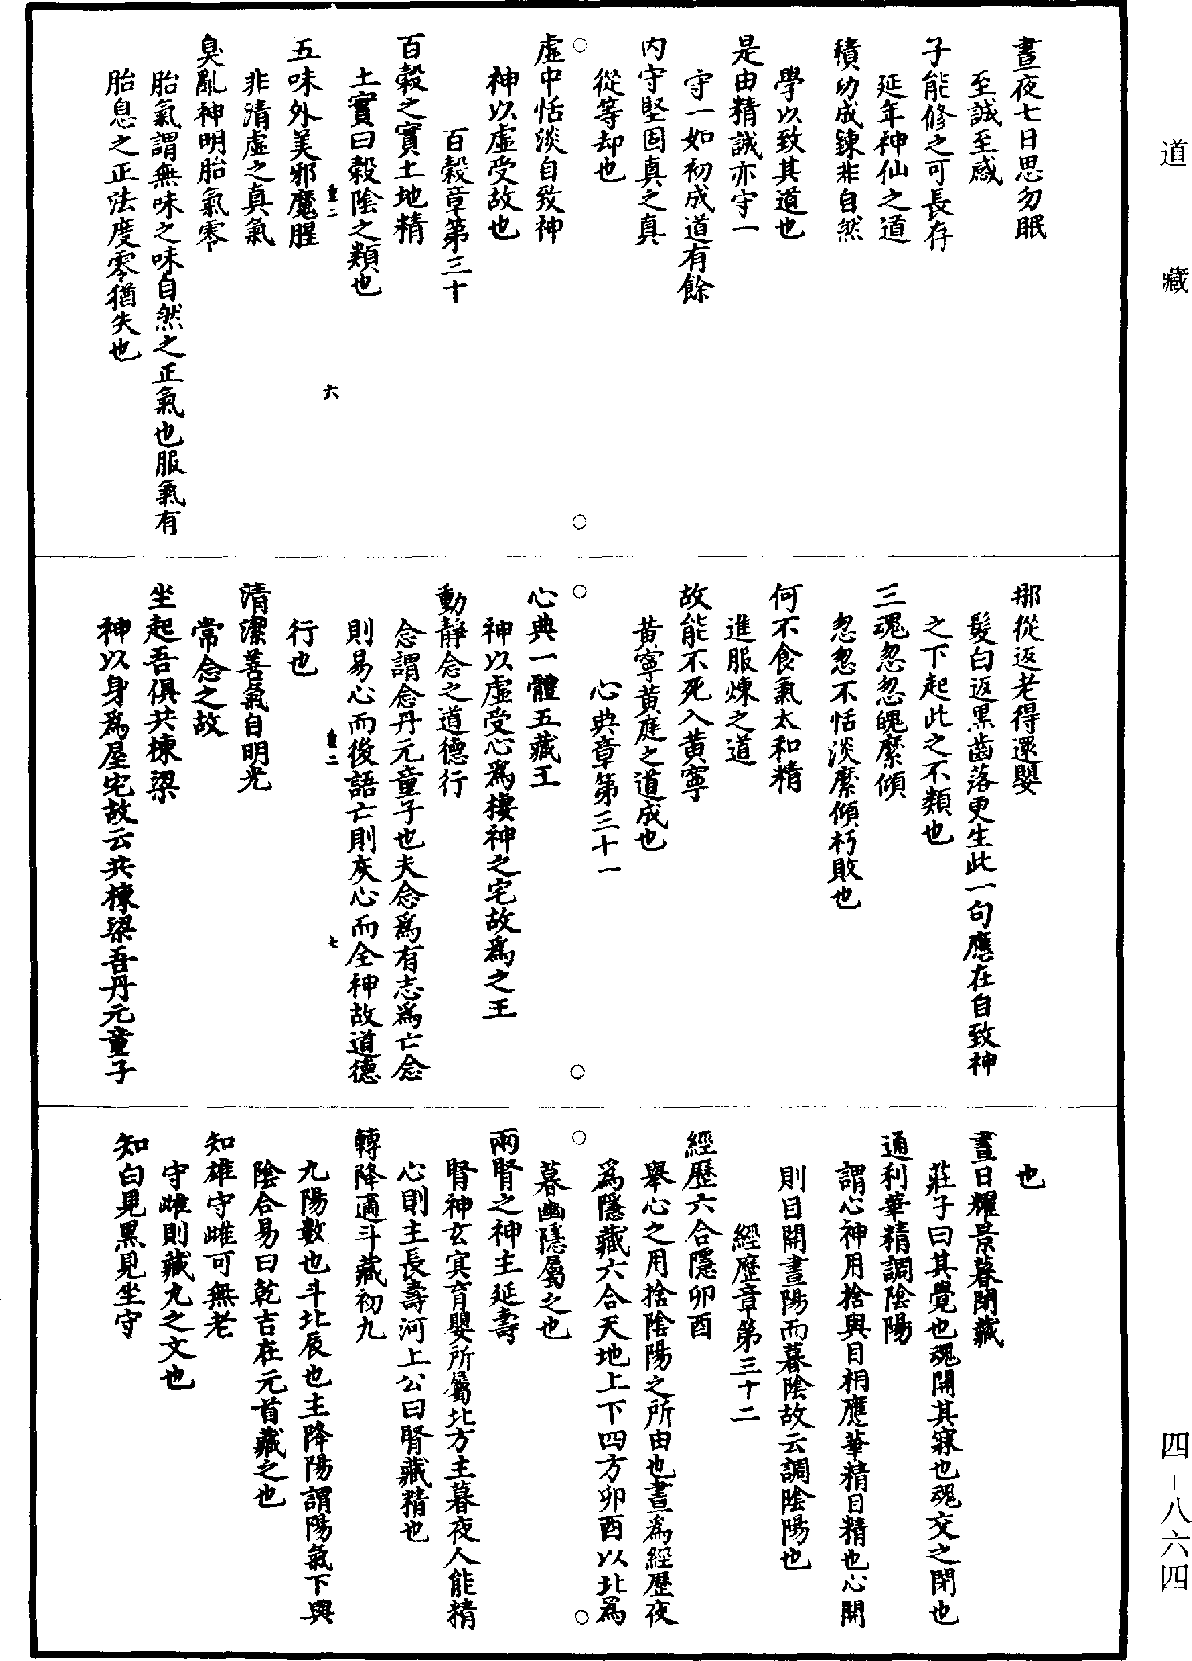 道藏
四－八六四
晝夜七日思勿眠
至誠至感
子能修之可長存
延年神仙之道
積功成鍊非自然
學以致其道也
是由精誠亦守一
守一如初成道有餘
內守堅固真之真
從等却也
虛中恬淡自致神
神以虛受故也
百穀章第三十
百穀之實土地精
土實曰穀陰之類也
五味外美邪魔腥
非清虛之真氣
臭亂神明胎氣零
胎氣謂無味之味自然之正氣也服氣有
胎息之正法度零猶失也
重二
六
那從返老得還嬰
髮白返黑齒落更生此一句應在自致神
之下起此之不類也
三魂忽忽魄糜傾
忽忽不恬淡糜傾朽敗也
何不食氣太和精
進服煉之道
故能不死入黃寧
黃寧黃庭之道成也
心典章第三十一
心典一體五藏王
神以虛受心為棲神之宅故為之王
動靜念之道德行
念謂念丹元童子也夫念為有志為亡念
則易心而後語亡則灰心而全神故道德
行也
清潔善氣自明光
常念之故
坐起吾俱共棟梁
神以身為屋宅故云共棟梁吾丹元童子
重二
七
也
晝日耀景暮閉藏
莊子曰其覺也魂開其寐也魂交之閉也
通利華精調陰陽
謂心神用捨與目相應華精目精也心開
則目開晝陽而暮陰故云調陰陽也
經歷章第三十二
經歷六合隱卯酉
舉心之用捨陰陽之所由也晝為經歷夜
為隱藏六合天地上下四方卯酉以北為
暮幽隱屬之也
兩腎之神主延壽
腎神玄冥育嬰所屬北方主暮夜人能精
心則主長壽河上公曰腎藏精也
轉降適斗藏初九
九陽數也斗北辰也主降陽謂陽氣下與
陰合易曰乾吉在元首藏之也
知雄守雌可無老
守雌則藏九之文也
知白見黑見坐守